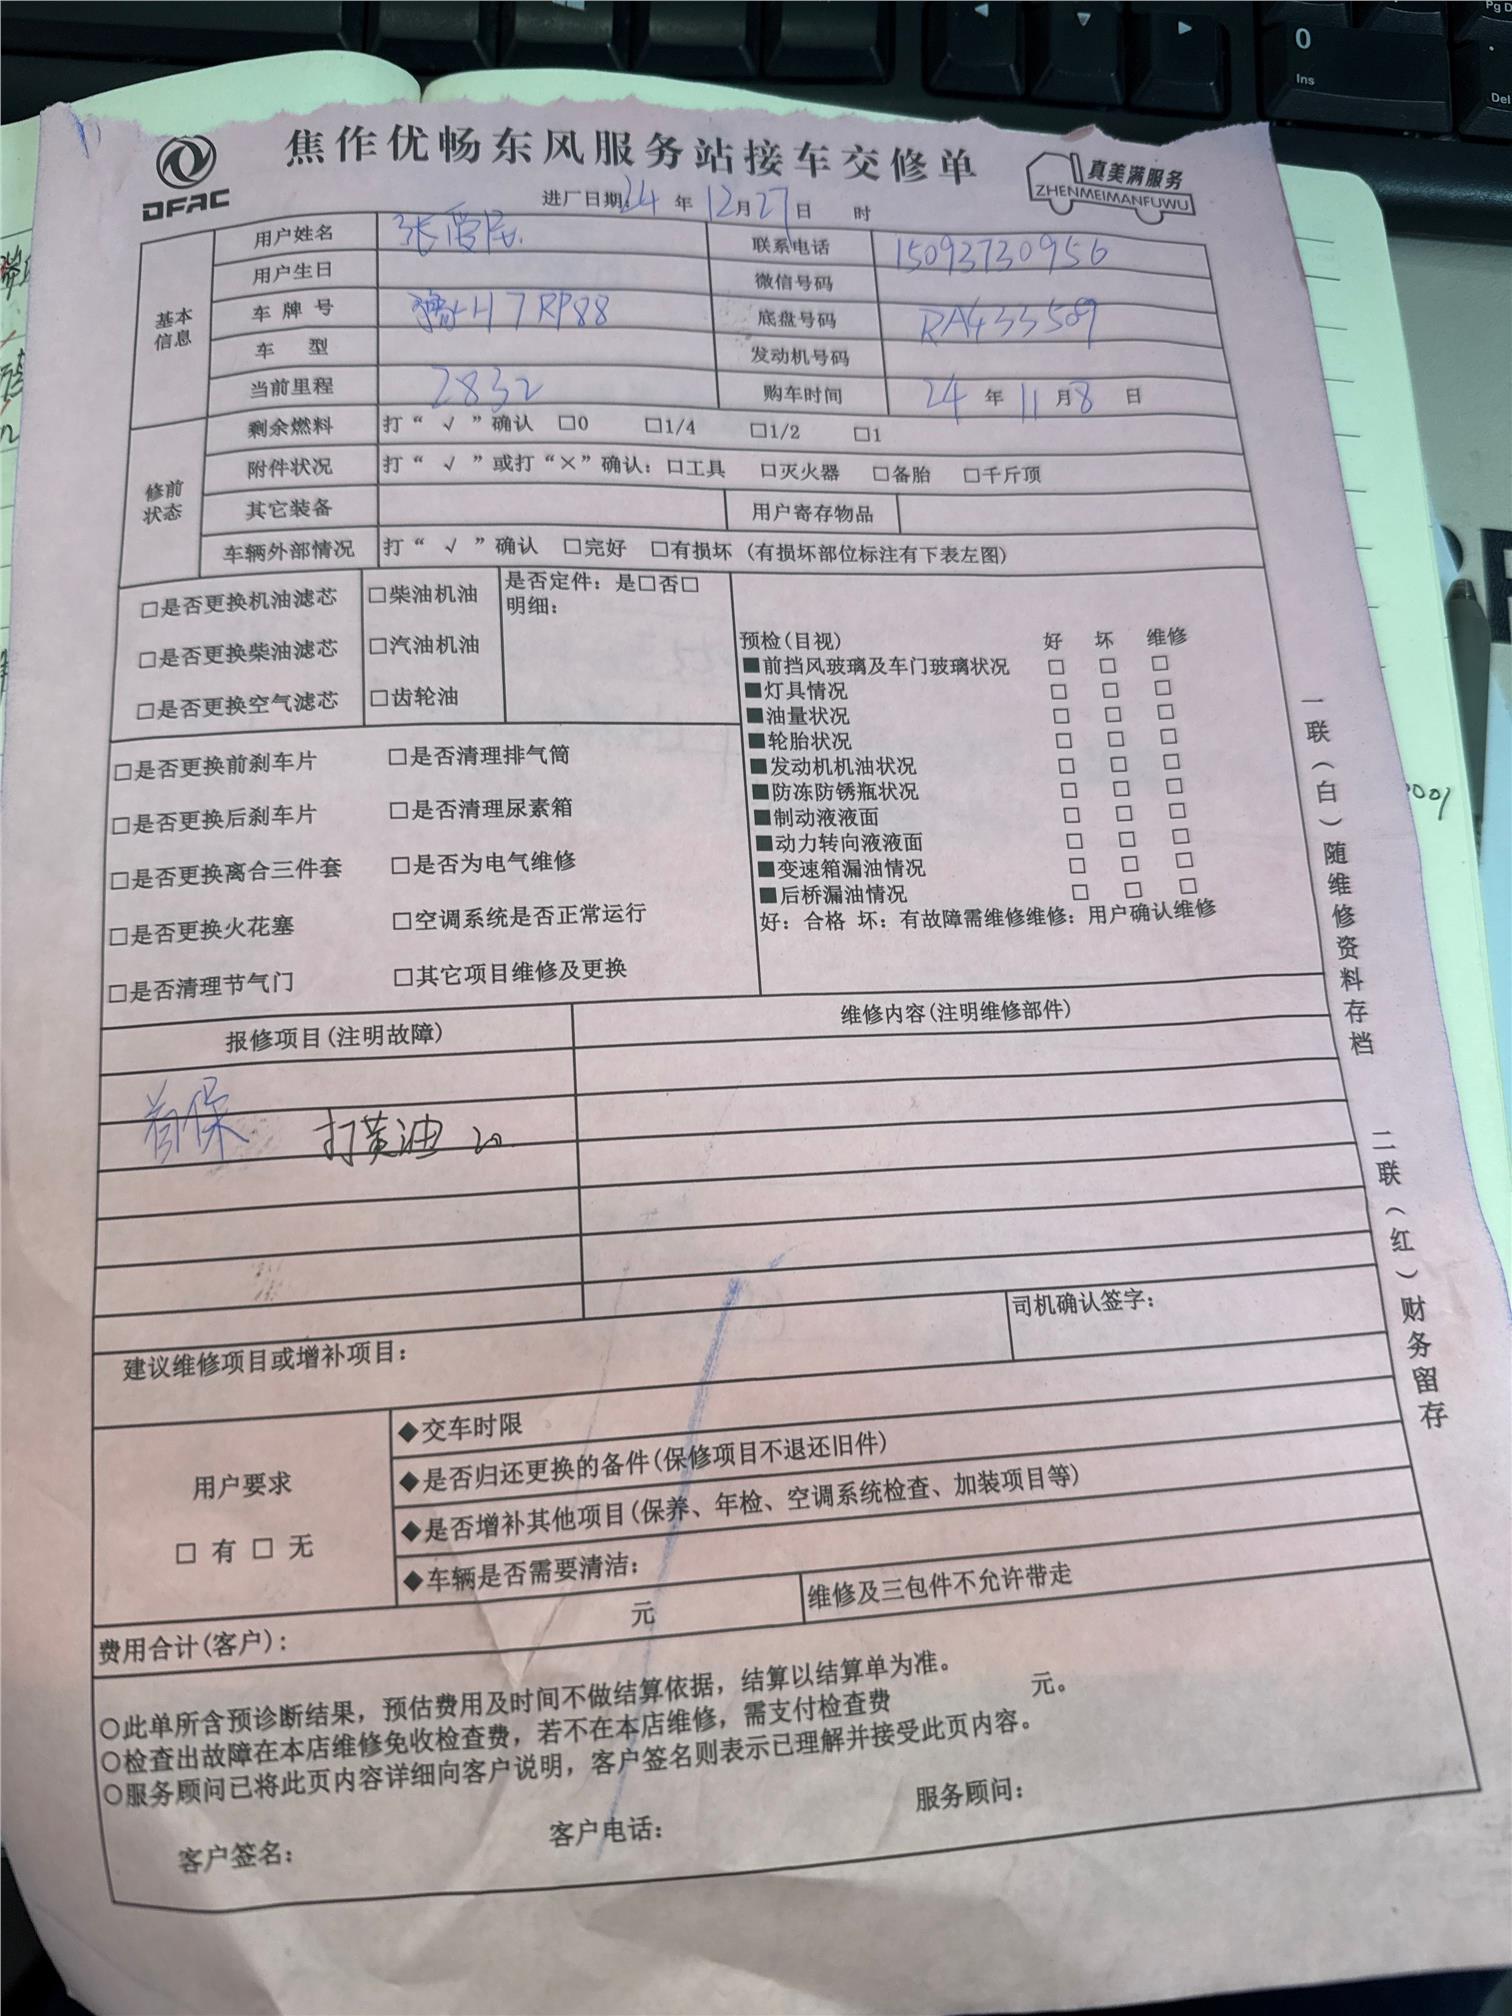 焦作优畅东风服务站接车交修单
DFAC
真美满服务
ZHENMEIMANFUWU
进厂日期:24年12月27日 时
基本信息
用户姓名 张 联系电话 15093730956
用户生日 微信号码
车牌号 豫H7RP88 底盘号码 RA433509
车 型 发动机号码
当前里程 2832 购车时间 24年11月8日
修前状态
剩余燃料 打“√”确认 □0 □1/4 □1/2 □1
附件状况 打“√”或打“×”确认：□工具 □灭火器 □备胎 □千斤顶
其它装备 用户寄存物品
车辆外部情况 打“√”确认 □完好 □有损坏(有损坏部位标注有下表左图)
□是否更换机油滤芯 □柴油机油 是否定件：是□否□
明细：
□是否更换柴油滤芯 □汽油机油
□是否更换空气滤芯 □齿轮油
预检(目视) 好 坏 维修
■前挡风玻璃及车门玻璃状况 □ □ □
■灯具情况 □ □ □
■油量状况 □ □ □
■轮胎状况 □ □ □
■发动机机油状况 □ □ □
■防冻防锈瓶状况 □ □ □
■制动液液面 □ □ □
■动力转向液液面 □ □ □
■变速箱漏油情况 □ □ □
■后桥漏油情况 □ □ □
好：合格 坏：有故障需维修维修：用户确认维修
□是否更换前刹车片 □是否清理排气筒
□是否更换后刹车片 □是否清理尿素箱
□是否更换离合三件套 □是否为电气维修
□是否更换火花塞 □空调系统是否正常运行
□是否清理节气门 □其它项目维修及更换
报修项目(注明故障) 维修内容(注明维修部件)
首保 打黄油 20
司机确认签字：
建议维修项目或增补项目：
用户要求
□ 有 □ 无
◆交车时限
◆是否归还更换的备件(保修项目不退还旧件)
◆是否增补其他项目(保养、年检、空调系统检查、加装项目等)
◆车辆是否需要清洁：
费用合计(客户)： 元 维修及三包件不允许带走
○此单所含预诊断结果，预估费用及时间不做结算依据，结算以结算单为准。
○检查出故障在本店维修免收检查费，若不在本店维修，需支付检查费 元。
○服务顾问已将此页内容详细向客户说明，客户签名则表示已理解并接受此页内容。
客户签名： 客户电话： 服务顾问：
一联(白)随维修资料存档 二联(红)财务留存
0
Ins
Del